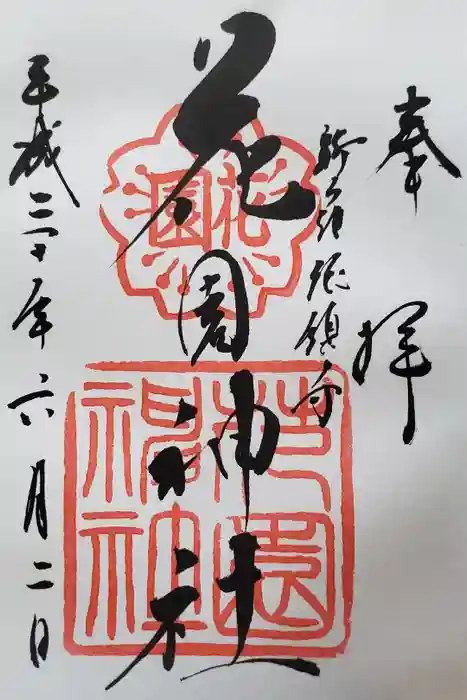 奉拝
新宿総鎮守
花園神社
花園
花園神社
平成三十年六月二日